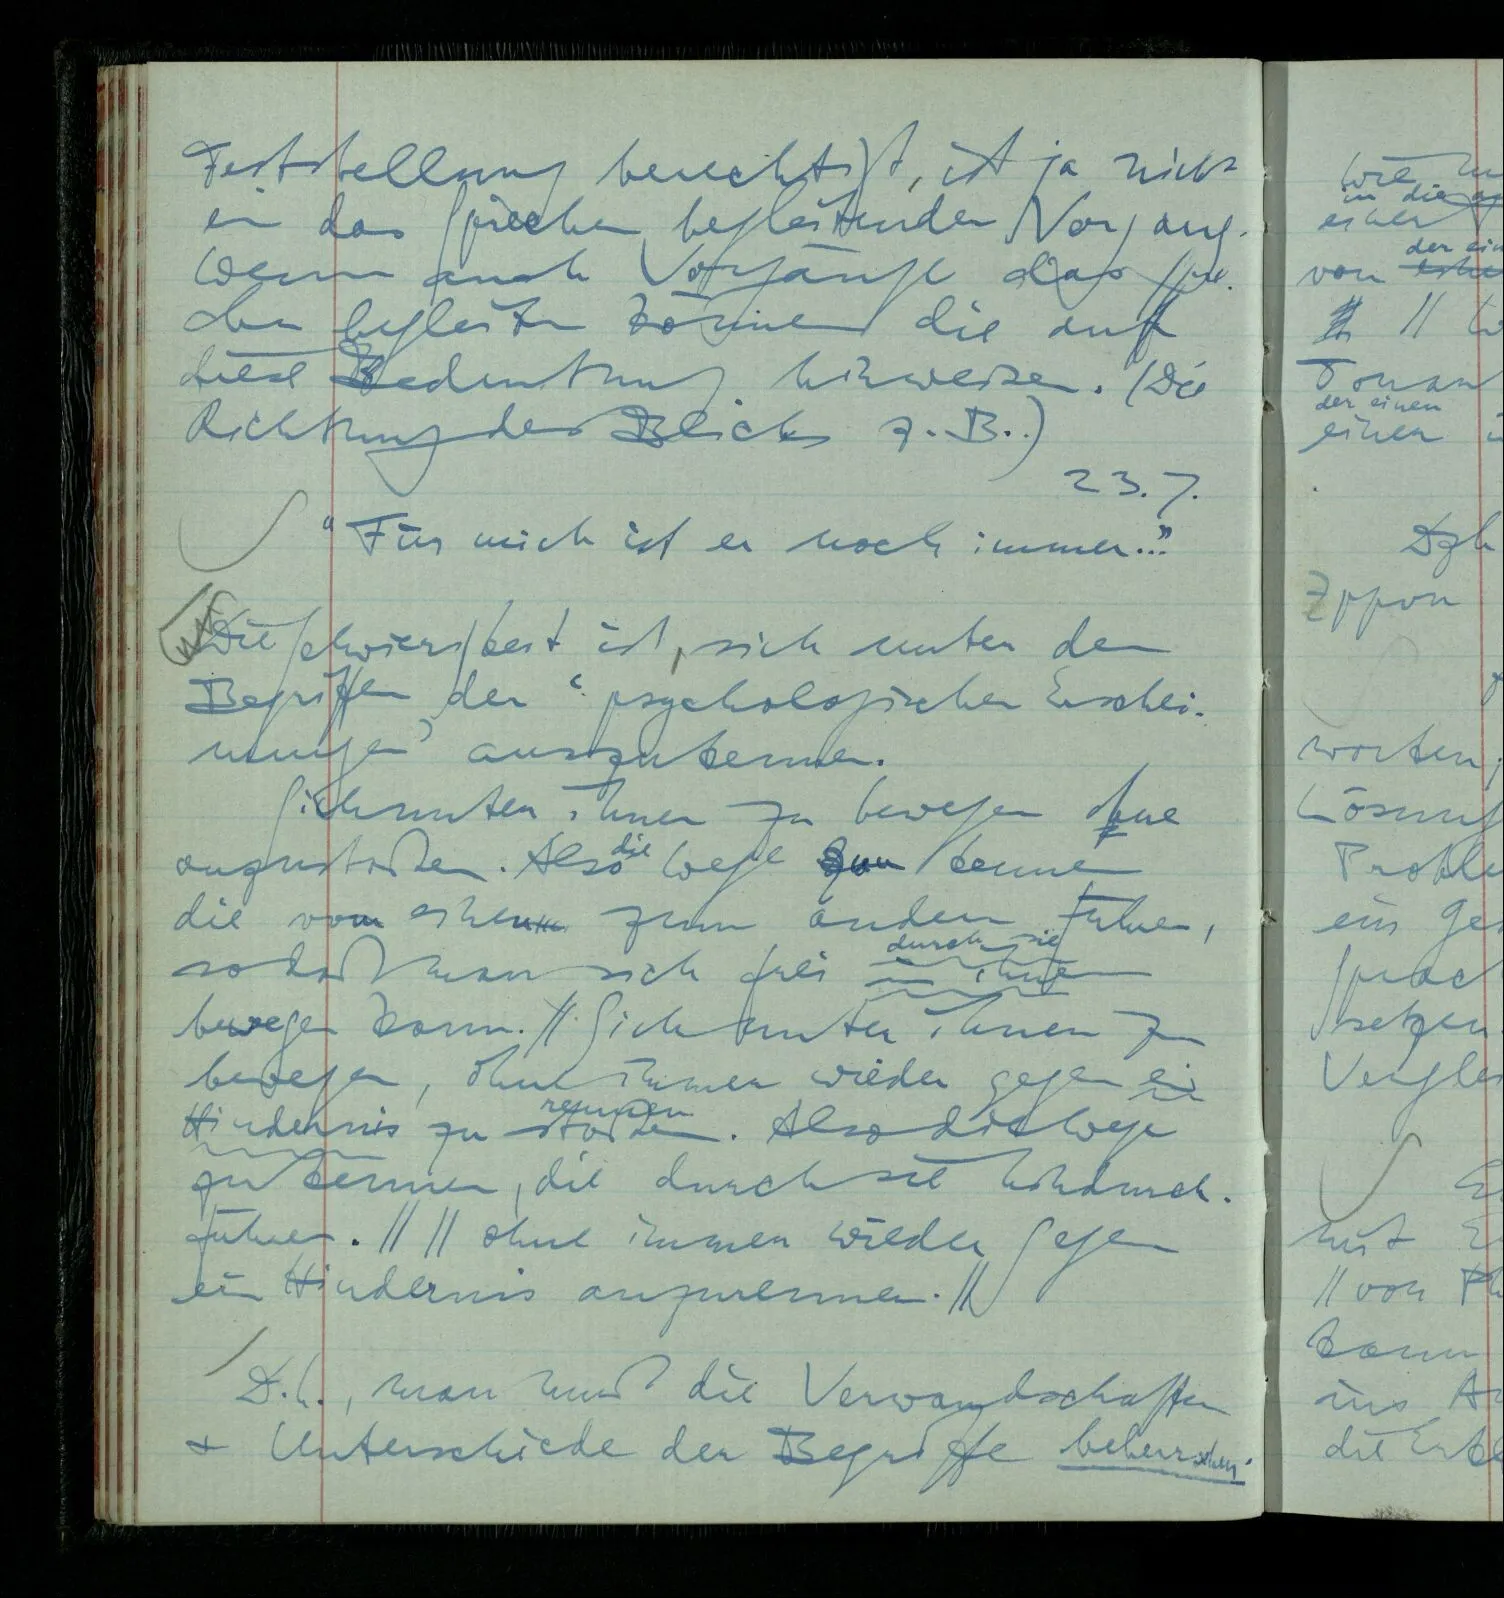 Feststellung berechtigt, ist ja nicht
ein das Sprechen begleitender Vorgang.
Wenn auch Vorgänge das Spre-
chen begleiten können die auf
diese Bedeutung hinweisen. (Die
Richtung des Blicks z.B..)
23.7.
"Für mich ist er noch immer..."
Die Schwierigkeit ist, sich unter den
Begriffen der 'psychologischen Erschei-
nungen' auszukennen.
Sich unter ihnen zu bewegen ohne
anzustoßen. Also die Wege zu kennen
die vom einen zum andern führen,
durch sie
sodaß man sich frei in ihnen
bewegen kann. // Sich unter ihnen zu
bewegen, ohne immer wieder gegen ein
rennen
Hindernis zu stoßen. Also die Wege
zu kennen, die durch sie hindurch-
führen. // // ohne immer wieder gegen
ein Hindernis anzurennen. //
D.h., man muß die Verwandschaften
& Unterschiede der Begriffe beherrschen.
in die
einen
der ein
von
der einen
einen
worten,
Lösung
ein
setzen
mit
// von
kann
ins
die